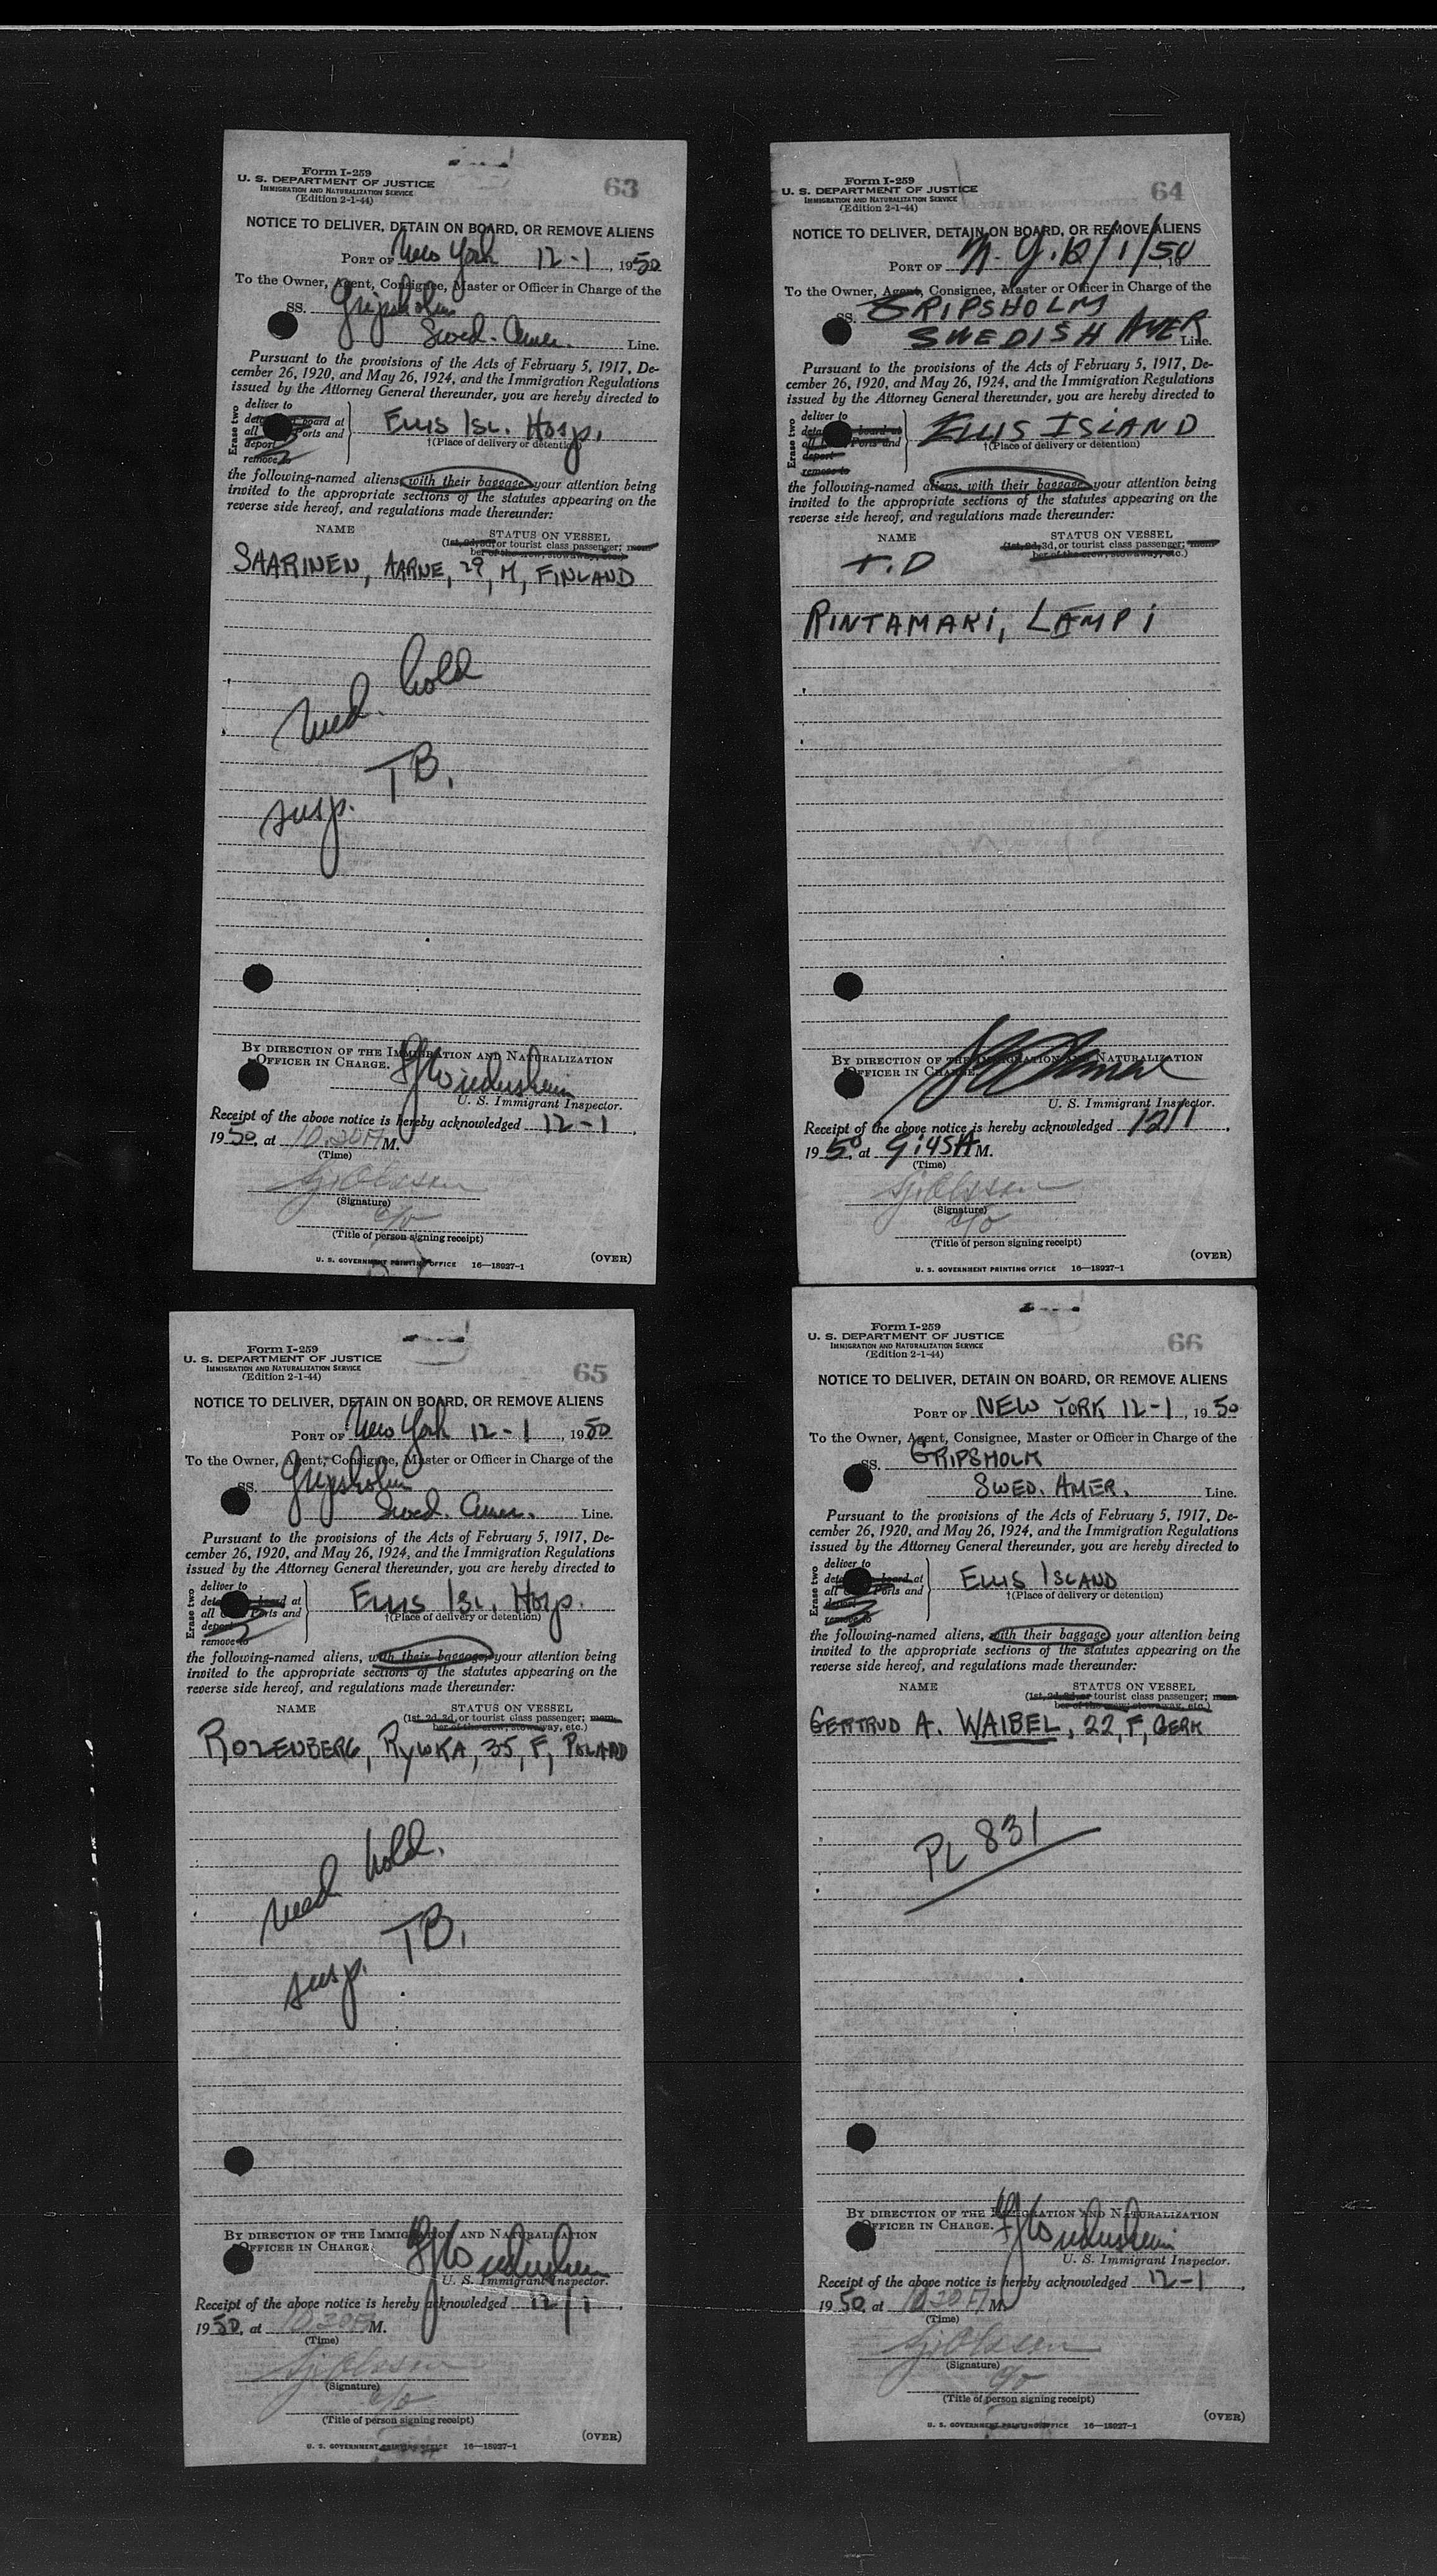 Form I-259
U. S. DEPARTMENT OF JUSTICE
IMMIGRATION AND NATURALIZATION SERVICE
(Edition 2-1-44)
63
NOTICE TO DELIVER, DETAIN ON BOARD, OR REMOVE ALIENS
PORT OF New York 12-1, 1950
To the Owner, Agent, Consignee, Master or Officer in Charge of the
SS. Gripsholm
Swed. Amer. Line.
Pursuant to the provisions of the Acts of February 5, 1917, De-
cember 26, 1920, and May 26, 1924, and the Immigration Regulations
issued by the Attorney General thereunder, you are hereby directed to
Erase two
deliver to
board at
all Ports and
deport
remove to
ELLIS ISL. HOSP.
†(Place of delivery or detention)
the following-named aliens, with their baggage, your attention being
invited to the appropriate sections of the statutes appearing on the
reverse side hereof, and regulations made thereunder:
NAME STATUS ON VESSEL
(1st, 2d, 3d, or tourist class passenger; mem-
ber of the crew, stowaway, etc.)
SAARINEN, AARNE, 29, M, FINLAND
med. hold
susp. TB.
BY DIRECTION OF THE IMMIGRATION AND NATURALIZATION
OFFICER IN CHARGE.
U. S. Immigrant Inspector.
Receipt of the above notice is hereby acknowledged 12-1,
1950, at 10.30A M.
(Time)
(Signature)
c/o
(Title of person signing receipt)
(OVER)
U. S. GOVERNMENT PRINTING OFFICE 16—18927-1
Form I-259
U. S. DEPARTMENT OF JUSTICE
IMMIGRATION AND NATURALIZATION SERVICE
(Edition 2-1-44)
64
NOTICE TO DELIVER, DETAIN ON BOARD, OR REMOVE ALIENS
PORT OF N. Y. 12/1/50, 19
To the Owner, Agent, Consignee, Master or Officer in Charge of the
SS. GRIPSHOLM
SWEDISH AMER Line.
Pursuant to the provisions of the Acts of February 5, 1917, De-
cember 26, 1920, and May 26, 1924, and the Immigration Regulations
issued by the Attorney General thereunder, you are hereby directed to
Erase two
deliver to
board at
all Ports and
deport
remove to
ELLIS ISLAND
†(Place of delivery or detention)
the following-named aliens, with their baggage, your attention being
invited to the appropriate sections of the statutes appearing on the
reverse side hereof, and regulations made thereunder:
NAME STATUS ON VESSEL
(1st, 2d, 3d, or tourist class passenger; mem-
ber of the crew, stowaway, etc.)
T.D
RINTAMAKI, LAMPI
BY DIRECTION OF THE IMMIGRATION AND NATURALIZATION
OFFICER IN CHARGE.
U. S. Immigrant Inspector.
Receipt of the above notice is hereby acknowledged 12/1,
1950, at 9:45A M.
(Time)
(Signature)
c/o
(Title of person signing receipt)
(OVER)
U. S. GOVERNMENT PRINTING OFFICE 16—18927-1
Form I-259
U. S. DEPARTMENT OF JUSTICE
IMMIGRATION AND NATURALIZATION SERVICE
(Edition 2-1-44)
65
NOTICE TO DELIVER, DETAIN ON BOARD, OR REMOVE ALIENS
PORT OF New York 12-1, 1950
To the Owner, Agent, Consignee, Master or Officer in Charge of the
SS. Gripsholm
Swed. Amer. Line.
Pursuant to the provisions of the Acts of February 5, 1917, De-
cember 26, 1920, and May 26, 1924, and the Immigration Regulations
issued by the Attorney General thereunder, you are hereby directed to
Erase two
deliver to
board at
all Ports and
deport
remove to
ELLIS ISL. HOSP.
†(Place of delivery or detention)
the following-named aliens, with their baggage, your attention being
invited to the appropriate sections of the statutes appearing on the
reverse side hereof, and regulations made thereunder:
NAME STATUS ON VESSEL
(1st, 2d, 3d, or tourist class passenger; mem-
ber of the crew, stowaway, etc.)
ROZENBERG, RYWKA, 35, F, POLAND
med hold.
susp. TB.
BY DIRECTION OF THE IMMIGRATION AND NATURALIZATION
OFFICER IN CHARGE.
U. S. Immigrant Inspector.
Receipt of the above notice is hereby acknowledged 12/1,
1950, at 10.30A M.
(Time)
(Signature)
c/o
(Title of person signing receipt)
(OVER)
U. S. GOVERNMENT PRINTING OFFICE 16—18927-1
Form I-259
U. S. DEPARTMENT OF JUSTICE
IMMIGRATION AND NATURALIZATION SERVICE
(Edition 2-1-44)
66
NOTICE TO DELIVER, DETAIN ON BOARD, OR REMOVE ALIENS
PORT OF NEW YORK 12-1, 1950
To the Owner, Agent, Consignee, Master or Officer in Charge of the
SS. GRIPSHOLM
SWED. AMER. Line.
Pursuant to the provisions of the Acts of February 5, 1917, De-
cember 26, 1920, and May 26, 1924, and the Immigration Regulations
issued by the Attorney General thereunder, you are hereby directed to
Erase two
deliver to
board at
all Ports and
deport
remove to
ELLIS ISLAND
†(Place of delivery or detention)
the following-named aliens, with their baggage, your attention being
invited to the appropriate sections of the statutes appearing on the
reverse side hereof, and regulations made thereunder:
NAME STATUS ON VESSEL
(1st, 2d, 3d, or tourist class passenger; mem-
ber of the crew, stowaway, etc.)
GERTRUD A. WAIBEL, 22, F, GERM
PL 831
BY DIRECTION OF THE IMMIGRATION AND NATURALIZATION
OFFICER IN CHARGE.
U. S. Immigrant Inspector.
Receipt of the above notice is hereby acknowledged 12-1,
1950, at 10.30A M.
(Time)
(Signature)
c/o
(Title of person signing receipt)
(OVER)
U. S. GOVERNMENT PRINTING OFFICE 16—18927-1